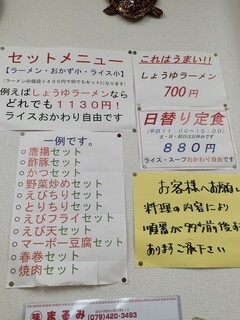 セットメニュー
【ラーメン・おかず小・ライス小】
(ラーメンの値段+430円で何でもセットになります)
例えばしょうゆラーメンなら
どれでも1130円!
ライスおかわり自由です
これはうまい!!
しょうゆラーメン
700円
日替り定食
(平日11:00~15:00)
土・日・祝日はお休みです
880円
ライス・スープおかわり自由です
一例です。
○唐揚セット
○酢豚セット
○かつセット
○野菜炒めセット
○えびちりセット
○とりちりセット
○えびフライセット
○えび天セット
○マーボー豆腐セット
○春巻セット
○焼肉セット
お客様へお願い
料理の内容により
順番が多少前後す
あります ご了承下さい
まるみ
(079)420-3493